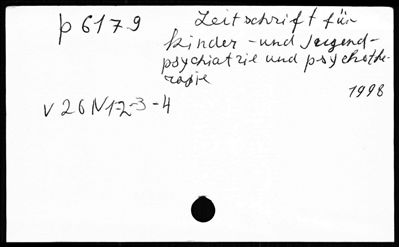 p 6179 Zeitschrift für
Kinder - und Jugend-
psychiatrie und psychothe
rapie
1998
V 26 N 1-2-3-4